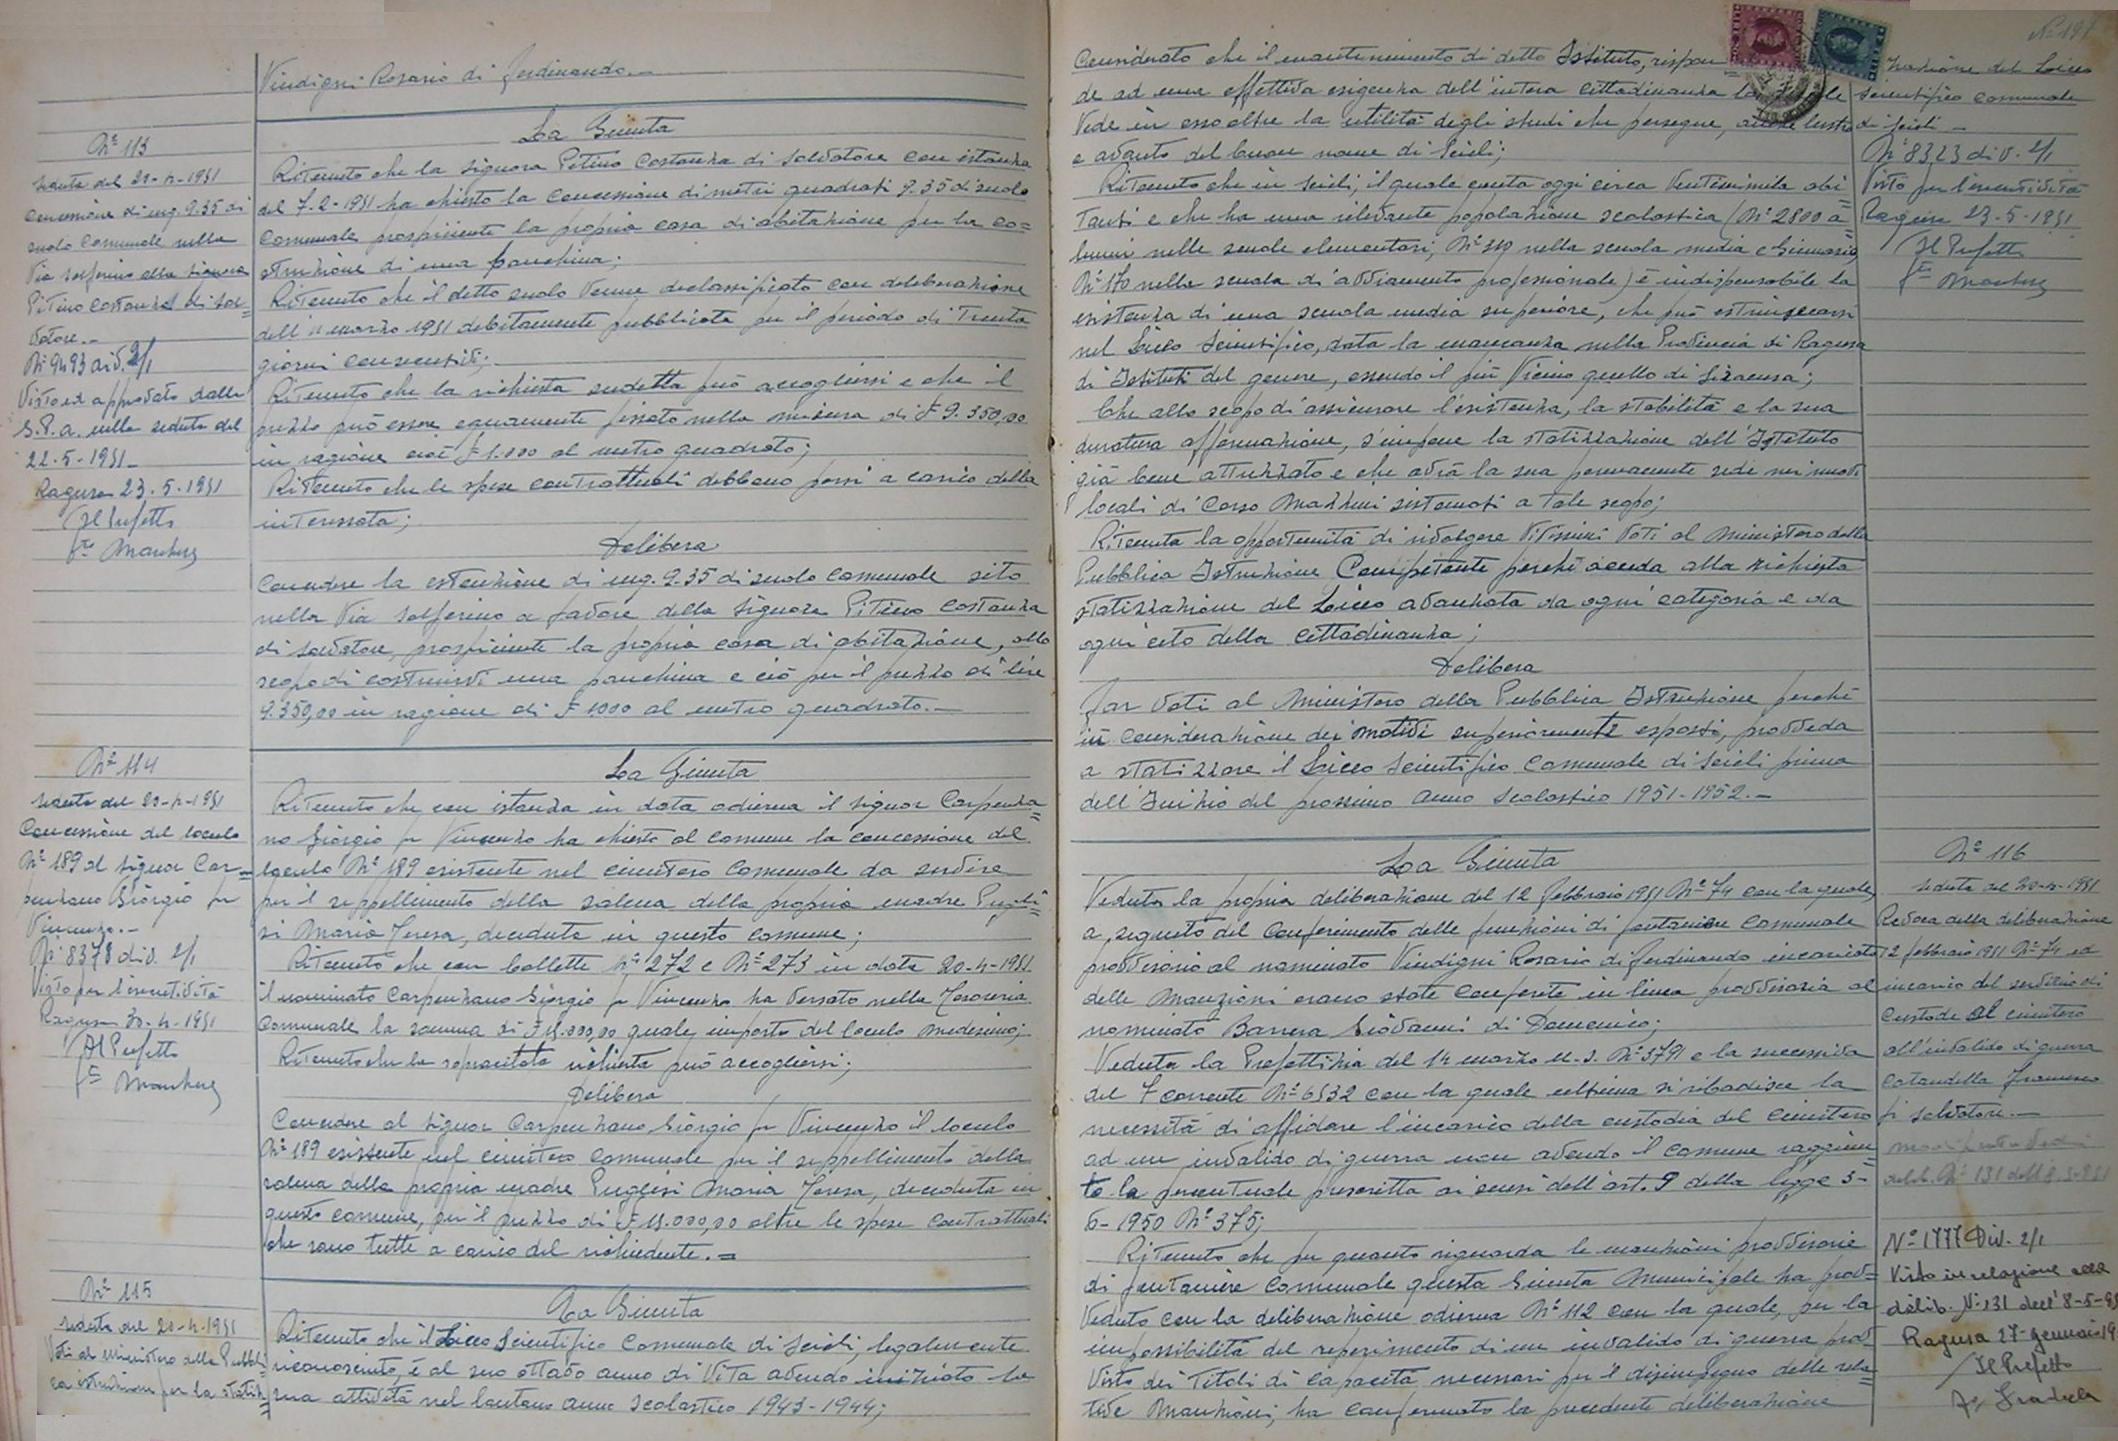 Vindigni Rosario di Ferdinando.-
Nº 113
seduta del 20-4-1951
Concessione di mq. 9.35 di
suolo comunale nella
Via Solferino alla signora
Pitino Costanza di Sal=
vatore.-
Nº 9493 div. 2/1
Visto ed approvato dalla
G.P.A. nella seduta del
22-5-1951-
Ragusa 23-5-1951
Il Prefetto
La Giunta
Ritenuto che la signora Pitino Costanza di Salvatore con istanza
del 7-2-1951 ha chiesto la concessione di metri quadrati 9.35 di suolo
comunale prospiciente la propria casa di abitazione per la co=
struzione di una panchina;
Ritenuto che il detto suolo venne declassificato con deliberazione
dell'11 marzo 1951 debitamente pubblicata per il periodo di trenta
giorni consecutivi;
Ritenuto che la richiesta sudetta può accogliersi e che il
prezzo può essere equamente fissato nella misura di £ 9.350,00
in ragione cioè £ 1.000 al metro quadrato;
Ritenuto che le spese contrattuali debbano porsi a carico della
interessata;
Delibera
Concedere la estenzione di mq. 9.35 di suolo comunale sito
nella Via Solferino a favore della signora Pitino Costanza
di Salvatore, prospiciente la propria casa di abitazione, allo
scopo di costruirvi una panchina e ciò per il prezzo di lire
9.350,00 in ragione di £ 1000 al metro quadrato.-
Nº 114
seduta del 20-4-1951
Concessione del loculo
Nº 189 al signor Car=
penzano Giorgio fu
Vincenzo.-
Nº 8378 div. 2/1
Visto per l'esecutività
Ragusa 30-4-1951
Il Prefetto
La Giunta
Ritenuto che con istanza in data odierna il signor Carpenza=
no Giorgio fu Vincenzo ha chiesto al comune la concessione del
loculo Nº 189 esistente nel cimitero comunale da servire
per il seppellimento della salma della propria madre Puglie=
si Maria Teresa, deceduta in questo comune;
Ritenuto che con bollette Nº 272 e Nº 273 in data 20-4-1951
il nominato Carpenzano Giorgio fu Vincenzo ha versato nella Tesoreria
Comunale la somma di £ 15.000,00 quale importo del loculo medesimo;
Ritenuto che la sopracitata richiesta può accogliersi;
Delibera
Concedere al signor Carpenzano Giorgio fu Vincenzo il loculo
Nº 189 esistente nel cimitero comunale per il seppellimento della
salma della propria madre Pugliesi Maria Teresa, deceduta in
questo comune, per il prezzo di £ 15.000,00 oltre le spese contrattuali
che sono tutte a carico del richiedente.=
Nº 115
seduta del 20-4-1951
Voti al Ministero della Pubbli=
ca istruzione per la statiz=
La Giunta
Ritenuto che il Liceo Scientifico Comunale di Scicli, legalmente
riconosciuto, è al suo ottavo anno di vita avendo iniziato la
sua attività nel lontano anno scolastico 1943-1944;
Considerato che il mantenimento di detto Istituto, rispon=
de ad una effettiva esigenza dell'intera cittadinanza la quale
vede in esso oltre la utilità degli studi che persegue, anche lustro
e vanto del buon nome di Scicli;
Ritenuto che in Scicli, il quale conta oggi circa ventiseimila abi=
tanti e che ha una rilevante popolazione scolastica (Nº 2800 a=
lunni nelle scuole elementari, Nº nella scuola media e Ginnasio
Nº 170 nella scuola di avviamento professionale) è indispensabile la
esistenza di una scuola media superiore, che può estrinsecarsi
nel Liceo Scientifico, data la mancanza nella Provincia di Ragusa
di Istituti del genere, essendo il più vicino quello di Siracusa;
Che allo scopo di assicurare l'esistenza, la stabilità e la sua
duratura affermazione, s'impone la statizzazione dell'Istituto
già bene attrezzato e che avrà la sua permanente sede nei nuovi
locali di Corso Mazzini sistemati a tale scopo;
Ritenuta la opportunità di rivolgere vivissimi voti al Ministero della
Pubblica Istruzione Competente perché acceda alla richiesta
statizzazione del Liceo avanzata da ogni categoria e da
ogni ceto della cittadinanza;
Delibera
Far voti al Ministero della Pubblica Istruzione perché
in considerazione dei motivi superiormente esposti, provveda
a statizzare il Liceo Scientifico Comunale di Scicli prima
dell'Inizio del prossimo anno scolastico 1951-1952.-
zazione del Liceo
scientifico comunale
di Scicli -
Nº 8323 div. 2/1
Visto per l'esecutività
Ragusa 23-5-1951
Il Prefetto
La Giunta
Veduta la propria deliberazione del 12 febbraio 1951 Nº 74 con la quale,
a seguito del conferimento delle funzioni di fontaniere comunale
provvisorio al nominato Vindigni Rosario di Ferdinando incaricato
delle Manzioni erano state conferite in linea provvisoria al
nominato Barrera Giovanni di Domenico;
Veduta la Prefettizia del 14 marzo u.s. Nº 3791 e la successiva
del 7 corrente Nº 6532 con la quale ultima si ribadisce la
necessità di affidare l'incarico della custodia del cimitero
ad un invalido di guerra non avendo il comune raggiun=
to la percentuale prescritta ai sensi dell'art. 9 della legge 3-
6-1950 Nº 375;
Ritenuto che per quanto riguarda le manzioni provvisorie
di fontaniere comunale questa Giunta Municipale ha prov=
veduto con la deliberazione odierna Nº 112 con la quale, per la
impossibilità del reperimento di un invalido di guerra prov=
visto dei titoli di capacità necessari per il disimpegno delle rela=
tive Manzioni, ha confermato la precedente deliberazione
Nº 116
seduta del 20-4-1951
Revoca della deliberazione
12 febbraio 1951 Nº 74 ed
incarico del servizio di
custode al cimitero
all'invalido di guerra
Cataudella Francesco
di Salvatore.-
modificata vedi
delib. Nº 131 dell'8-5-951
Nº 1777 Div. 2/1
Visto in relazione alla
delib. N. 131 dell'8-5-95
Ragusa 27-gennaio 19
Il Prefetto